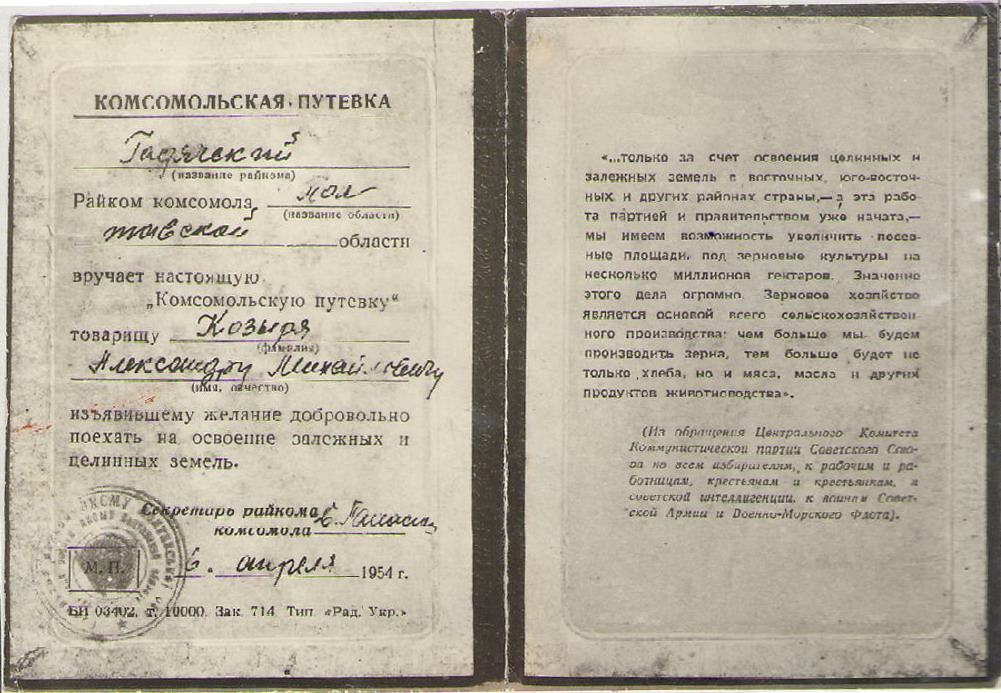 КОМСОМОЛЬСКАЯ ПУТЕВКА
Гадячский
(название райкома)
Райком комсомола пол
(название области)
тавской области
вручает настоящую
„Комсомольскую путевку“
товарищу Козыря
(фамилия)
Александру Михайловичу
(имя, отчество)
изъявившему желание добровольно
поехать на освоение залежных и
целинных земель.
Секретарь райкома
комсомола
М. П. 6. апреля 1954 г.
БИ 03402. т. 10000. Зак. 714 Тип. «Рад. Укр.»
«...только за счет освоения целинных и
залежных земель в восточных, юго-восточ-
ных и других районах страны,— а эта рабо-
та партией и правительством уже начата,—
мы имеем возможность увеличить посев-
ные площади под зерновые культуры на
несколько миллионов гектаров. Значение
этого дела огромно. Зерновое хозяйство
является основой всего сельскохозяйствен-
ного производства: чем больше мы будем
производить зерна, тем больше будет не
только хлеба, но и мяса, масла и других
продуктов животноводства».
(Из обращения Центрального Комитета
Коммунистической партии Советского Сою-
за ко всем избирателям, к рабочим и ра-
ботницам, крестьянам и крестьянкам, к
советской интеллигенции, к воинам Совет-
ской Армии и Военно-Морского Флота).